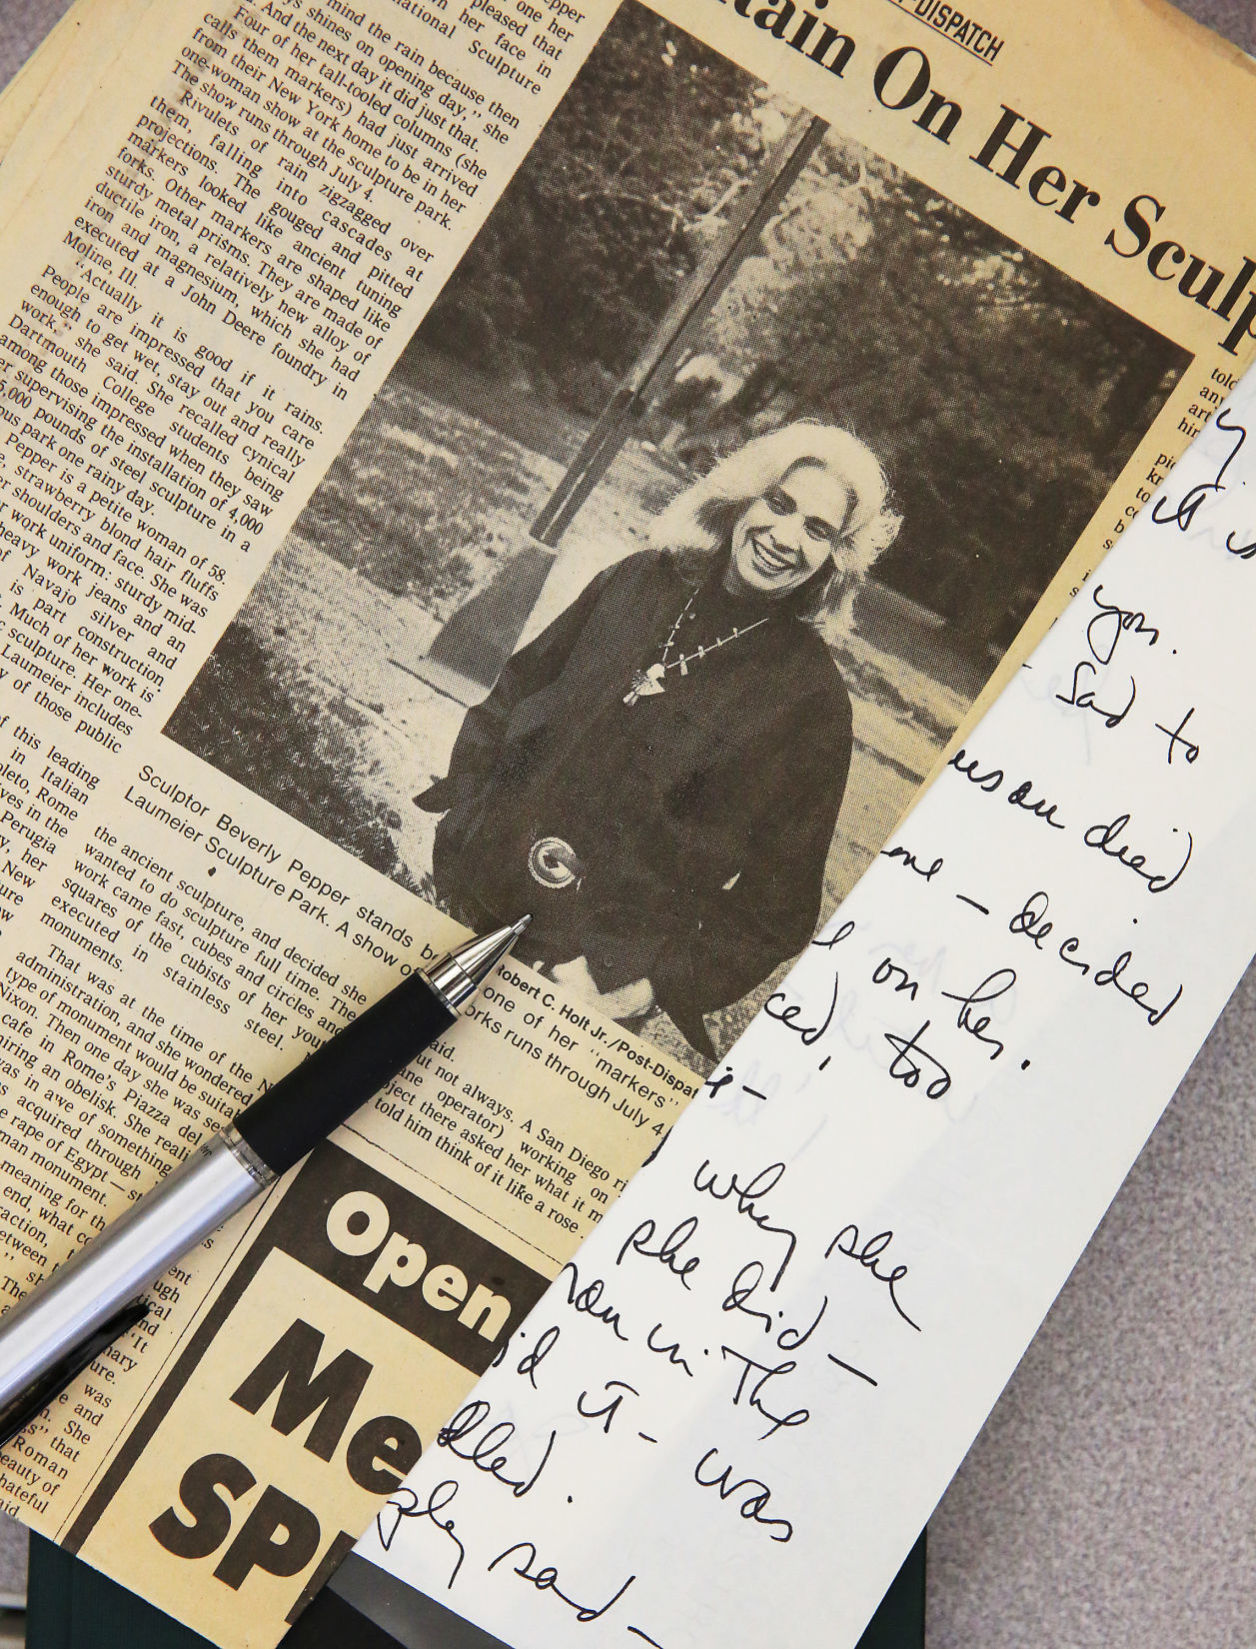 -DISPATCH
On Her Sculp
pepper
one her
pleased that
her face in
national Sculpture
mind the rain because then
shines on opening day," she
And the next day it did just that.
Four of her tall-tooled columns (she
calls them markers) had just arrived
from their New York home to be in her
one-woman show at the sculpture park.
The show runs through July 4.
Rivulets of rain zigzagged over
them, falling into cascades at
projections. The gouged and pitted
markers looked like ancient tuning
forks. Other markers are shaped like
sturdy metal prisms. They are made of
ductile iron, a relatively new alloy of
iron and magnesium, which she had
executed at a John Deere foundry in
Moline, Ill.
"Actually it is good if it rains.
People are impressed that you care
enough to get wet, stay out and really
work," she said. She recalled cynical
Dartmouth College students being
among those impressed when they saw
er supervising the installation of 4,000
5,000 pounds of steel sculpture in a
ous park one rainy day.
Pepper is a petite woman of 58.
e, strawberry blond hair fluffs
er shoulders and face. She was
r work uniform: sturdy mid-
heavy work jeans and an
of Navajo silver and
is part construction
Much of her work is
c sculpture. Her one-
Laumeier includes
y of those public
of this leading
in Italian
oleto, Rome
ves in the
Perugia
y, her
New
ure
ow
Sculptor Beverly Pepper stands b
one of her "markers"
Laumeier Sculpture Park. A show o
orks runs through July 4.
Robert C. Holt Jr./Post-Dispat
the ancient sculpture, and decided she
wanted to do sculpture full time. The
work came fast, cubes and circles and
squares of the cubists of her you
executed in stainless steel.
monuments.
That was at the time of the N
administration, and she wondered
type of monument would be suitab
Nixon. Then one day she was se
cafe in Rome's Piazza del
iring an obelisk. She reali
was in awe of something
s acquired through
e rape of Egypt — st
man monument.
meaning for th
end, what co
raction,
etween t
" sh
The
ent
ugh
tical
and
'It
nary
ure.
was
e and
n. She
s" that
Roman
eauty of
hateful
aid
said.
but not always. A San Diego ri
ane operator) working on
ject there asked her what it m
told him think of it like a rose
told
any
art
hir
Open
Me
SP
y.
it is
you.
- Sad to
died
me - decided
on her.
ced, too
why she
she did -
in The
it - was
sad -